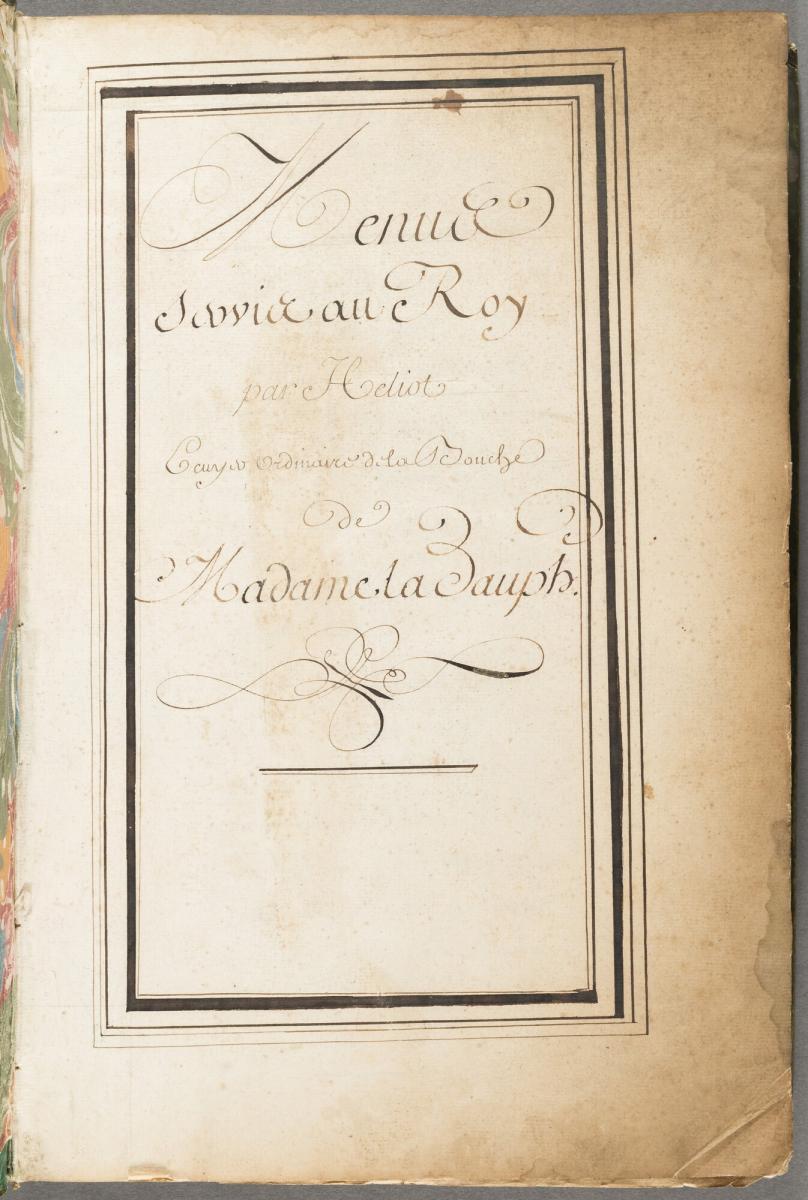 Menus
Servis au Roy
par Heliot
Ecuyer Ordinaire de la Bouche
de
Madame la Dauph.